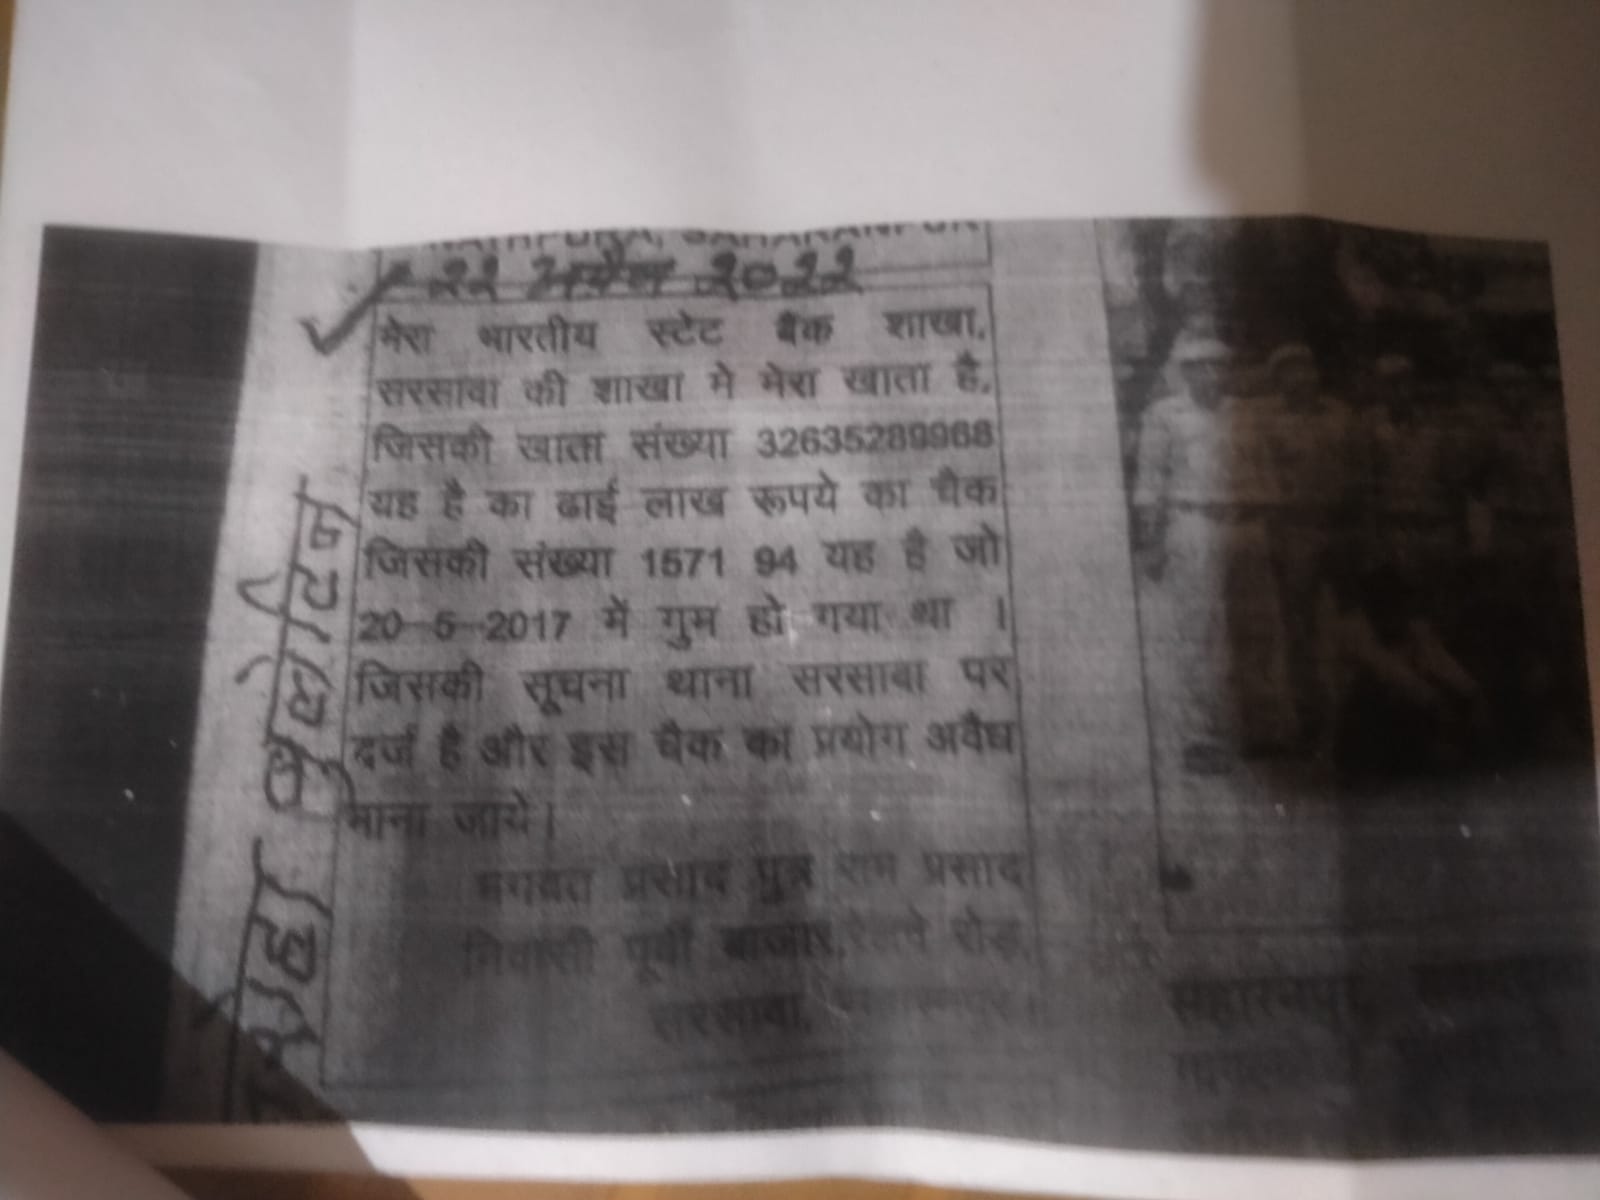 NATHPURA, SAHARANPUR
२२ अप्रैल २०२२
मेरा भारतीय स्टेट बैंक शाखा,
सरसावा की शाखा मे मेरा खाता है,
जिसकी खाता संख्या 32635289968
यह है का ढाई लाख रूपये का चैक
जिसकी संख्या 1571 94 यह है जो
20-5-2017 में गुम हो गया था ।
जिसकी सूचना थाना सरसावा पर
दर्ज है और इस चैक का प्रयोग अवैध
माना जाये।
भगवत प्रसाद पुत्र राम प्रसाद
निवासी पूर्वी बाजार, रेलवे रोड़,
सरसावा, सहारनपुर।
बुलेटिन
सहारनपुर